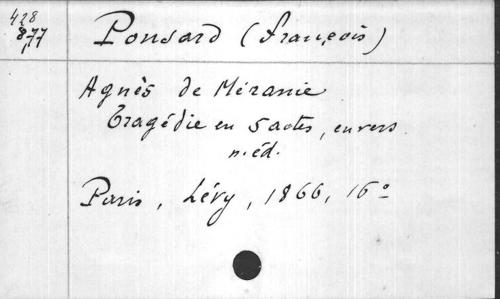 428
877
Ponsard (François)
Agnès de Méranie
Tragédie en 5 actes, en vers.
n. éd.
Paris, Lévy, 1866, 16°